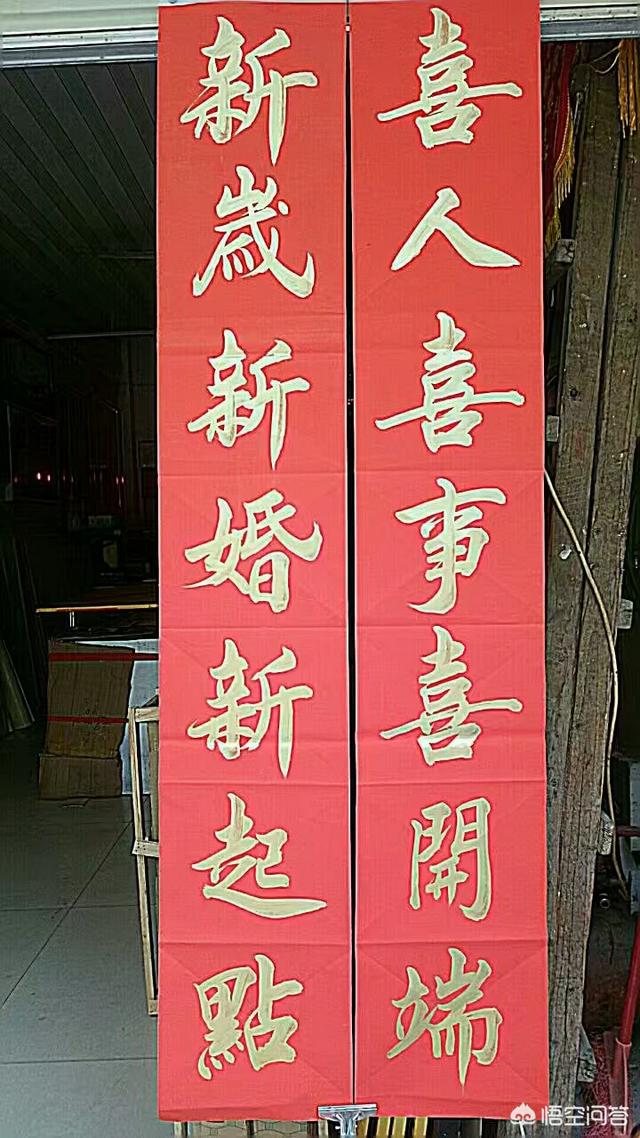 喜人喜事喜開端
新歲新婚新起點
悟空问答